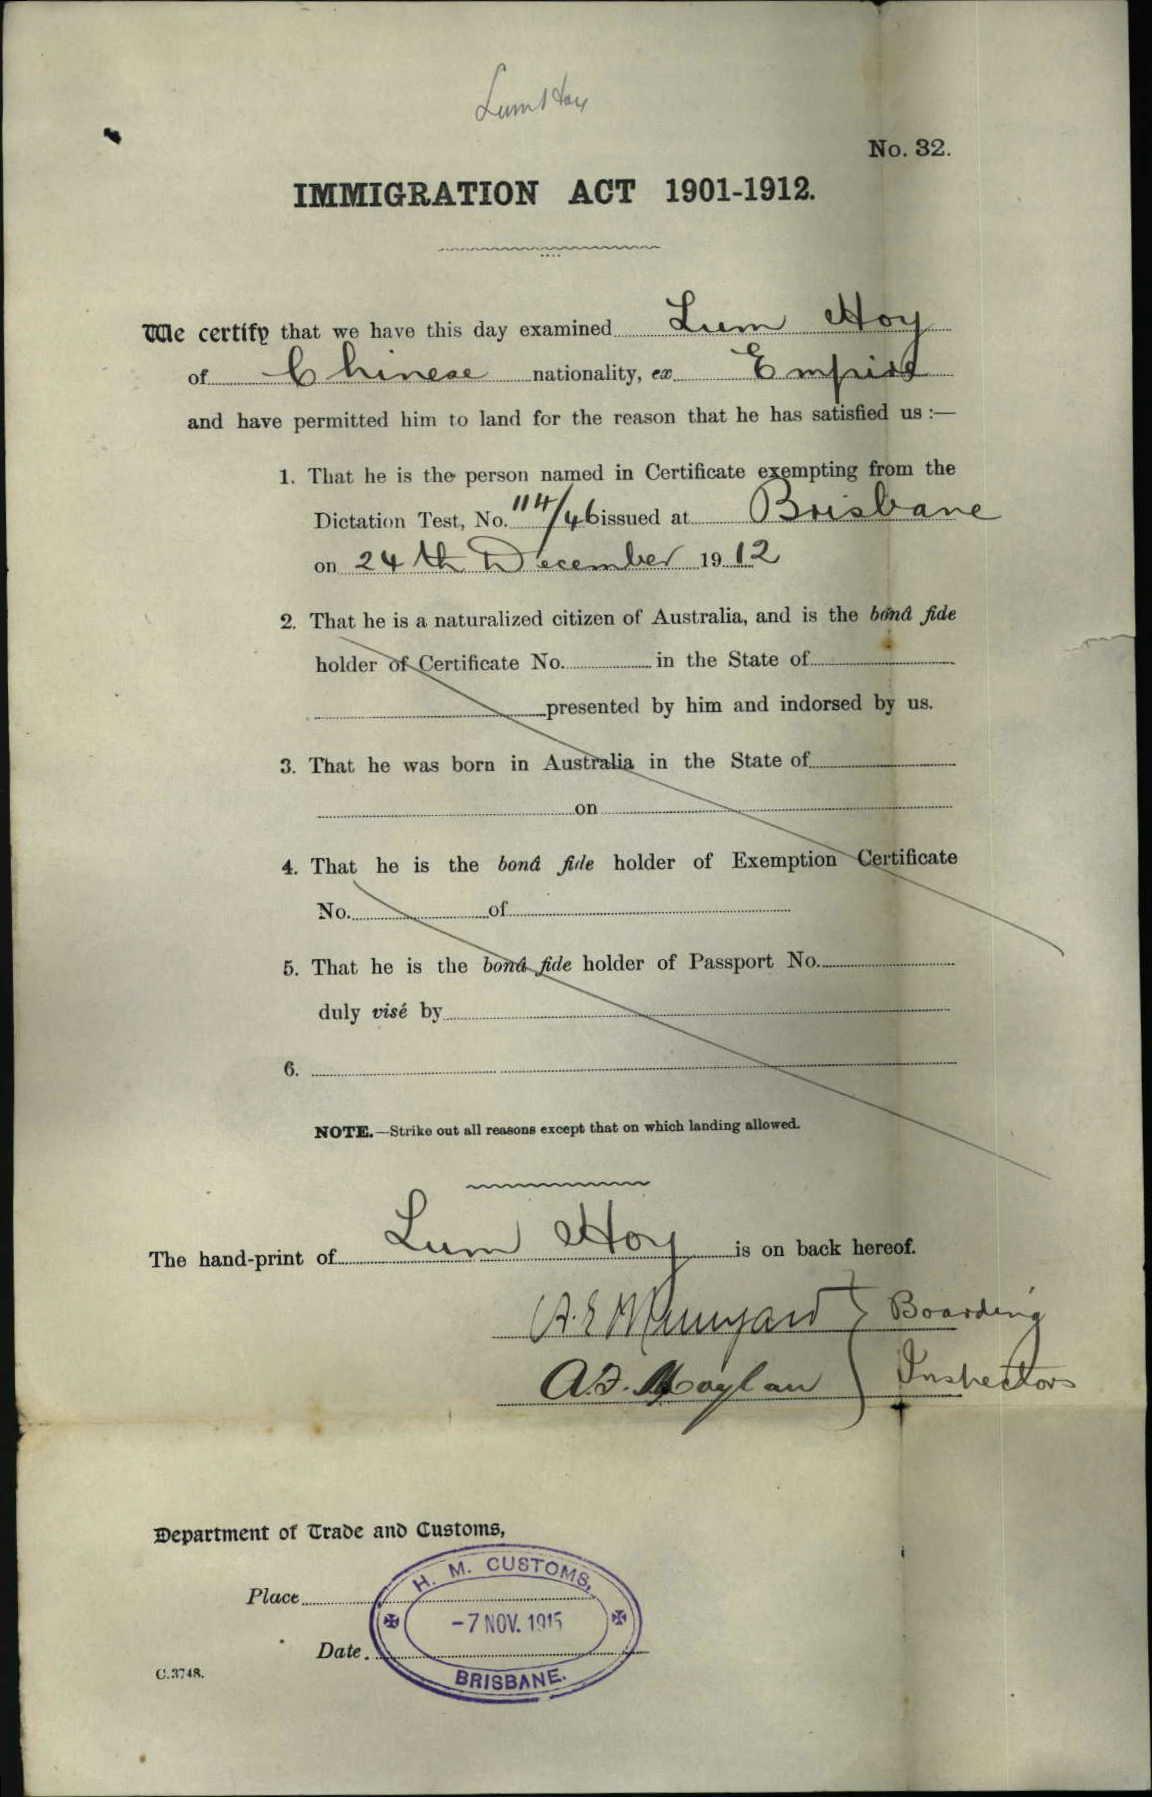 Lum Hoy
No. 32.
IMMIGRATION ACT 1901-1912.
We certify that we have this day examined Lum Hoy
of Chinese nationality, ex Empire
and have permitted him to land for the reason that he has satisfied us :—
1. That he is the person named in Certificate exempting from the
Dictation Test, No. 114/46 issued at Brisbane
on 24th December 1912
2. That he is a naturalized citizen of Australia, and is the bonâ fide
holder of Certificate No. in the State of
presented by him and indorsed by us.
3. That he was born in Australia in the State of
on
4. That he is the bonâ fide holder of Exemption Certificate
No. of
5. That he is the bonâ fide holder of Passport No.
duly visé by
6.
NOTE.—Strike out all reasons except that on which landing allowed.
The hand-print of Lum Hoy is on back hereof.
A. E. Munyard } Boarding
A. F. Inspectors
Department of Trade and Customs,
Place
H. M. CUSTOMS,
-7 NOV. 1915
Date
BRISBANE.
C.3748.